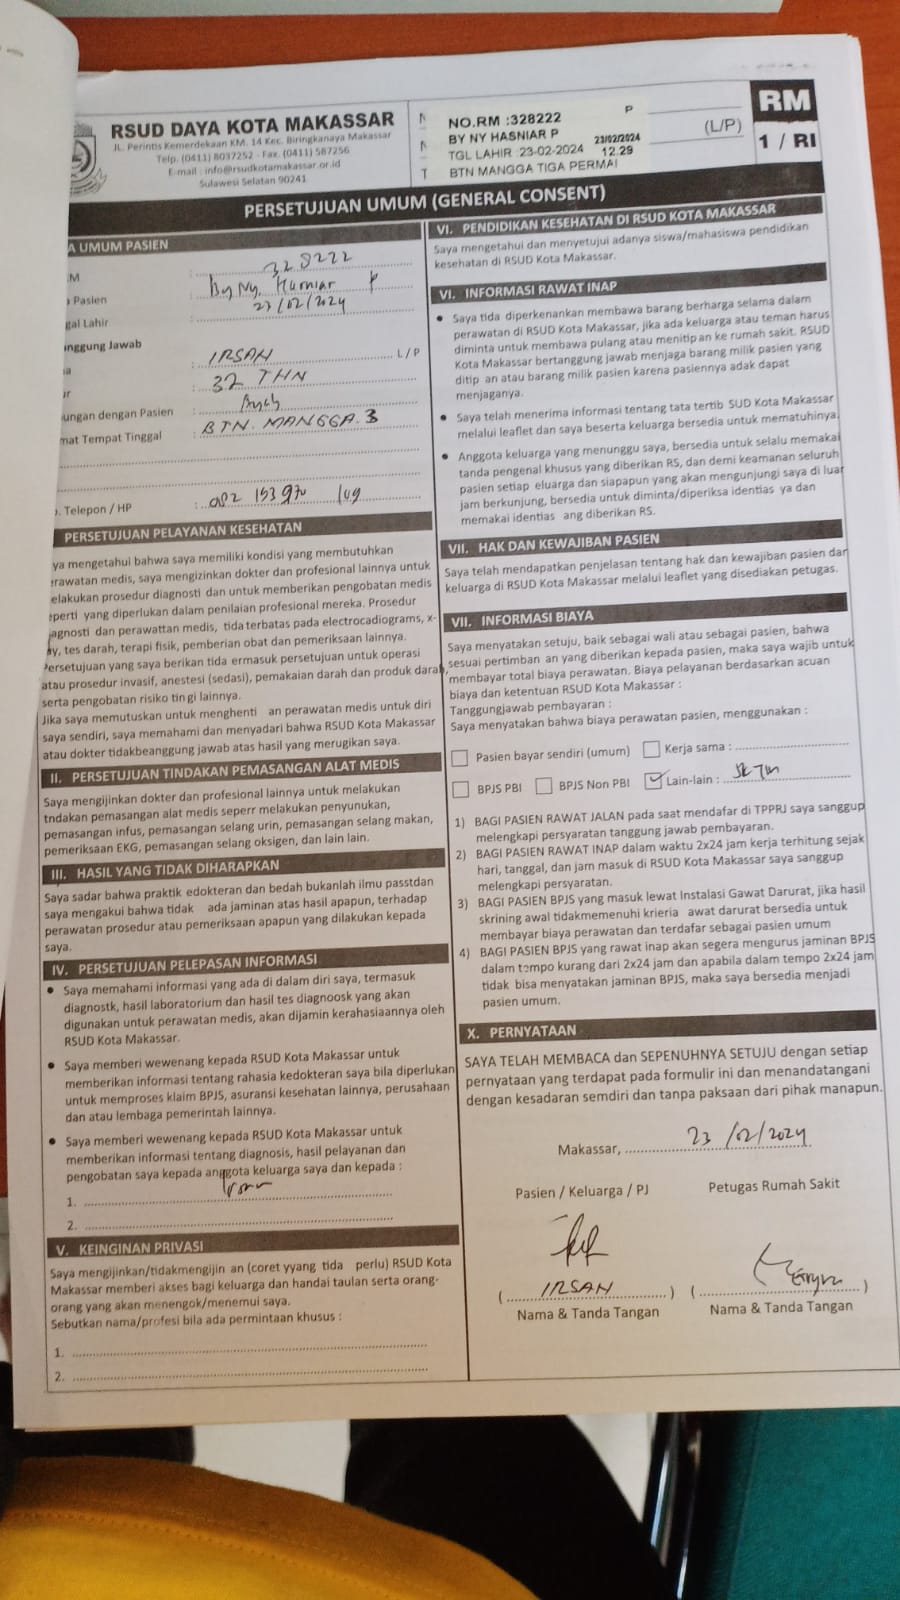 RSUD DAYA KOTA MAKASSAR
JL. Perintis Kemerdekaan KM. 14 Kec. Biringkanaya Makassar
Telp. (0411) 8037252 - Fax. (0411) 587256
E-mail : info@rsudkotamakassar.or.id
Sulawesi Selatan 90241
NO.RM :328222 P
BY NY HASNIAR P 23/02/2024
TGL LAHIR 23-02-2024 12.29
BTN MANGGA TIGA PERMAI
(L/P)
RM
1 / RI
PERSETUJUAN UMUM (GENERAL CONSENT)
A UMUM PASIEN
M : 328222
Pasien : By Ny. P
gal Lahir : 23/02/2024
nggung Jawab
a : IRSAN L / P
ur : 32 THN
ungan dengan Pasien : Ayah
mat Tempat Tinggal : BTN. MANGGA. 3
. Telepon / HP : 082 153 970 149
PERSETUJUAN PELAYANAN KESEHATAN
ya mengetahui bahwa saya memiliki kondisi yang membutuhkan
rawatan medis, saya mengizinkan dokter dan profesional lainnya untuk
elakukan prosedur diagnosti dan untuk memberikan pengobatan medis
eperti yang diperlukan dalam penilaian profesional mereka. Prosedur
agnosti dan perawattan medis, tida terbatas pada electrocadiograms, x-
ay, tes darah, terapi fisik, pemberian obat dan pemeriksaan lainnya.
Persetujuan yang saya berikan tida ermasuk persetujuan untuk operasi
atau prosedur invasif, anestesi (sedasi), pemakaian darah dan produk darah,
serta pengobatan risiko tin gi lainnya.
Jika saya memutuskan untuk menghenti an perawatan medis untuk diri
saya sendiri, saya memahami dan menyadari bahwa RSUD Kota Makassar
atau dokter tidakbeanggung jawab atas hasil yang merugikan saya.
II. PERSETUJUAN TINDAKAN PEMASANGAN ALAT MEDIS
Saya mengijinkan dokter dan profesional lainnya untuk melakukan
tndakan pemasangan alat medis seperr melakukan penyunukan,
pemasangan infus, pemasangan selang urin, pemasangan selang makan,
pemeriksaan EKG, pemasangan selang oksigen, dan lain lain.
III. HASIL YANG TIDAK DIHARAPKAN
Saya sadar bahwa praktik edokteran dan bedah bukanlah ilmu passtdan
saya mengakui bahwa tidak ada jaminan atas hasil apapun, terhadap
perawatan prosedur atau pemeriksaan apapun yang dilakukan kepada
saya.
IV. PERSETUJUAN PELEPASAN INFORMASI
• Saya memahami informasi yang ada di dalam diri saya, termasuk
diagnostk, hasil laboratorium dan hasil tes diagnoosk yang akan
digunakan untuk perawatan medis, akan dijamin kerahasiaannya oleh
RSUD Kota Makassar.
• Saya memberi wewenang kepada RSUD Kota Makassar untuk
memberikan informasi tentang rahasia kedokteran saya bila diperlukan
untuk memproses klaim BPJS, asuransi kesehatan lainnya, perusahaan
dan atau lembaga pemerintah lainnya.
• Saya memberi wewenang kepada RSUD Kota Makassar untuk
memberikan informasi tentang diagnosis, hasil pelayanan dan
pengobatan saya kepada anggota keluarga saya dan kepada :
1.
2.
V. KEINGINAN PRIVASI
Saya mengijinkan/tidakmengijin an (coret yyang tida perlu) RSUD Kota
Makassar memberi akses bagi keluarga dan handai taulan serta orang-
orang yang akan menengok/menemui saya.
Sebutkan nama/profesi bila ada permintaan khusus :
1.
2.
VI. PENDIDIKAN KESEHATAN DI RSUD KOTA MAKASSAR
Saya mengetahui dan menyetujui adanya siswa/mahasiswa pendidikan
kesehatan di RSUD Kota Makassar.
VI. INFORMASI RAWAT INAP
• Saya tida diperkenankan membawa barang berharga selama dalam
perawatan di RSUD Kota Makassar, jika ada keluarga atau teman harus
diminta untuk membawa pulang atau menitip an ke rumah sakit. RSUD
Kota Makassar bertanggung jawab menjaga barang milik pasien yang
ditip an atau barang milik pasien karena pasiennya adak dapat
menjaganya.
• Saya telah menerima informasi tentang tata tertib SUD Kota Makassar
melalui leaflet dan saya beserta keluarga bersedia untuk mematuhinya.
• Anggota keluarga yang menunggu saya, bersedia untuk selalu memakai
tanda pengenal khusus yang diberikan RS, dan demi keamanan seluruh
pasien setiap eluarga dan siapapun yang akan mengunjungi saya di luar
jam berkunjung, bersedia untuk diminta/diperiksa identias ya dan
memakai identias ang diberikan RS.
VII. HAK DAN KEWAJIBAN PASIEN
Saya telah mendapatkan penjelasan tentang hak dan kewajiban pasien dar
keluarga di RSUD Kota Makassar melalui leaflet yang disediakan petugas.
VII. INFORMASI BIAYA
Saya menyatakan setuju, baik sebagai wali atau sebagai pasien, bahwa
sesuai pertimban an yang diberikan kepada pasien, maka saya wajib untuk
membayar total biaya perawatan. Biaya pelayanan berdasarkan acuan
biaya dan ketentuan RSUD Kota Makassar :
Tanggungjawab pembayaran :
Saya menyatakan bahwa biaya perawatan pasien, menggunakan :
Pasien bayar sendiri (umum) Kerja sama :
BPJS PBI BPJS Non PBI Lain-lain : SKTM
1) BAGI PASIEN RAWAT JALAN pada saat mendafar di TPPRJ saya sanggup
melengkapi persyaratan tanggung jawab pembayaran.
2) BAGI PASIEN RAWAT INAP dalam waktu 2x24 jam kerja terhitung sejak
hari, tanggal, dan jam masuk di RSUD Kota Makassar saya sanggup
melengkapi persyaratan.
3) BAGI PASIEN BPJS yang masuk lewat Instalasi Gawat Darurat, jika hasil
skrining awal tidakmemenuhi krieria awat darurat bersedia untuk
membayar biaya perawatan dan terdafar sebagai pasien umum
4) BAGI PASIEN BPJS yang rawat inap akan segera mengurus jaminan BPJS
dalam tempo kurang dari 2x24 jam dan apabila dalam tempo 2x24 jam
tidak bisa menyatakan jaminan BPJS, maka saya bersedia menjadi
pasien umum.
X. PERNYATAAN
SAYA TELAH MEMBACA dan SEPENUHNYA SETUJU dengan setiap
pernyataan yang terdapat pada formulir ini dan menandatangani
dengan kesadaran semdiri dan tanpa paksaan dari pihak manapun.
Makassar, 23/02/2024
Pasien / Keluarga / PJ Petugas Rumah Sakit
( IRSAN ) ( )
Nama & Tanda Tangan Nama & Tanda Tangan